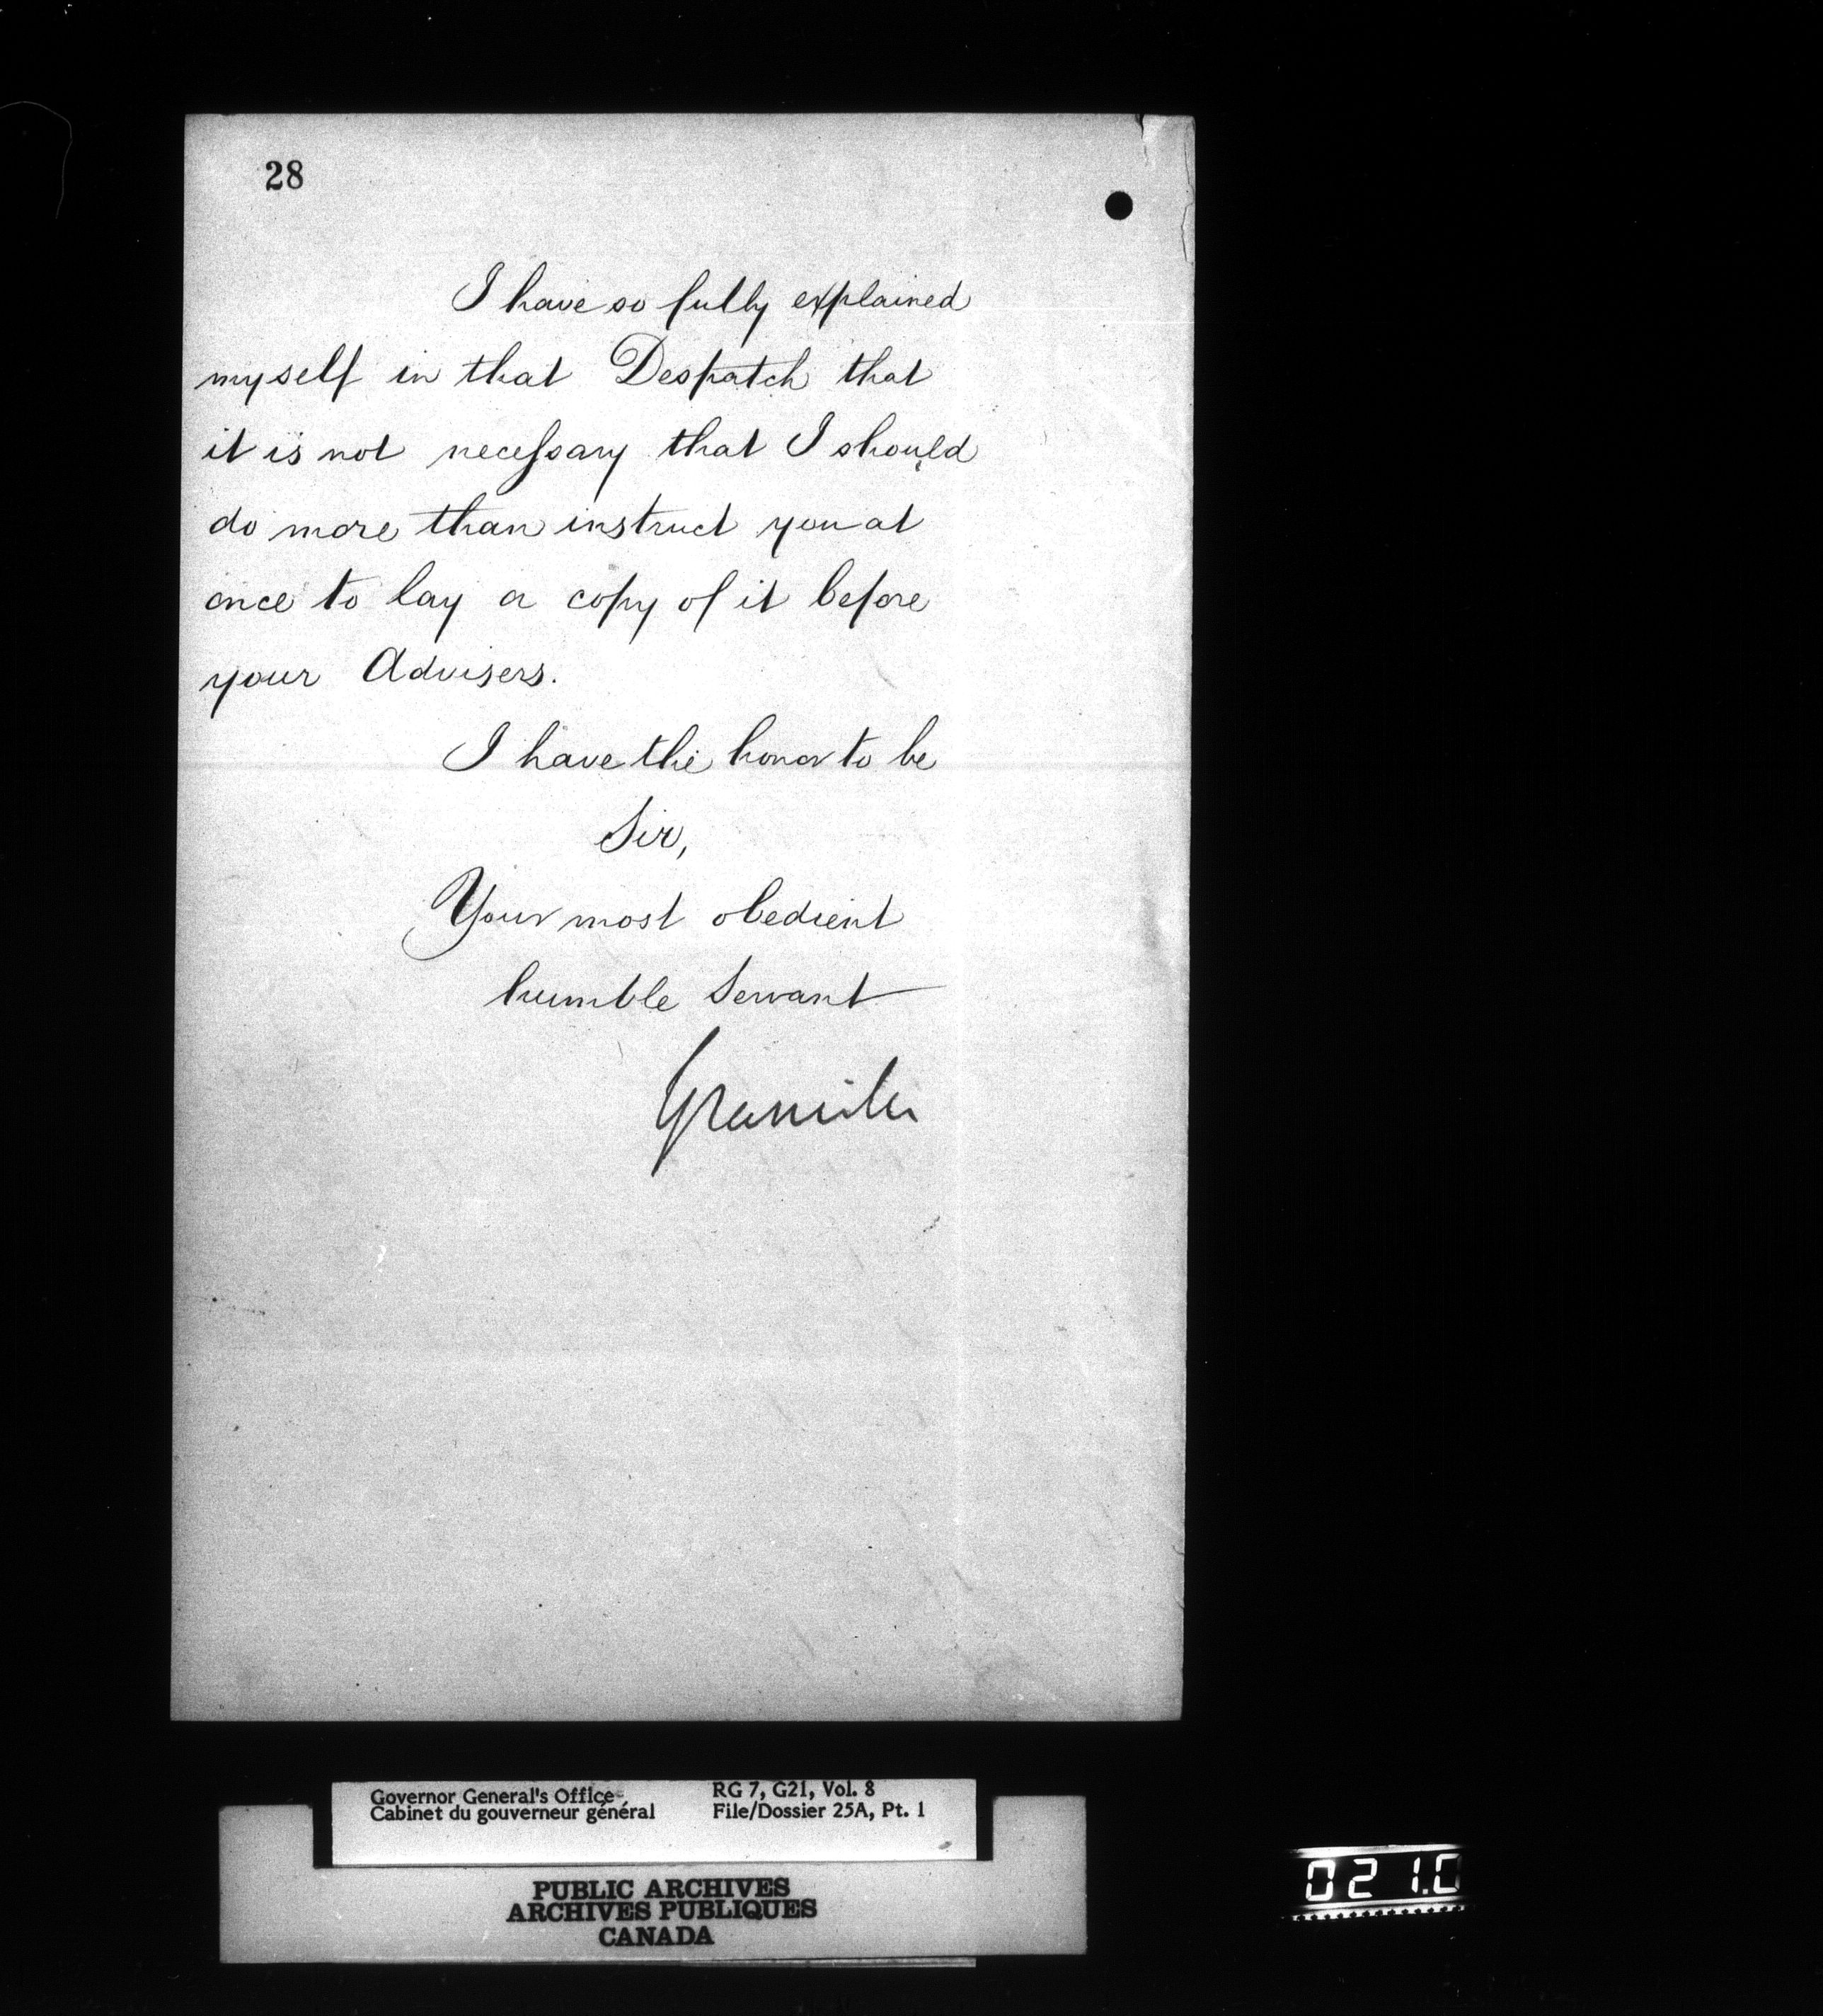 28
I have so fully explained
myself in that Despatch that
it is not necessary that I should
do more than instruct you at
once to lay a copy of it before
your Advisers.
I have the honor to be
Sir,
Your most obedient
humble Servant
Granville
Governor General's Office
Cabinet du gouverneur général
RG 7, G21, Vol. 8
File/Dossier 25A, Pt. 1
PUBLIC ARCHIVES
ARCHIVES PUBLIQUES
CANADA
021.0